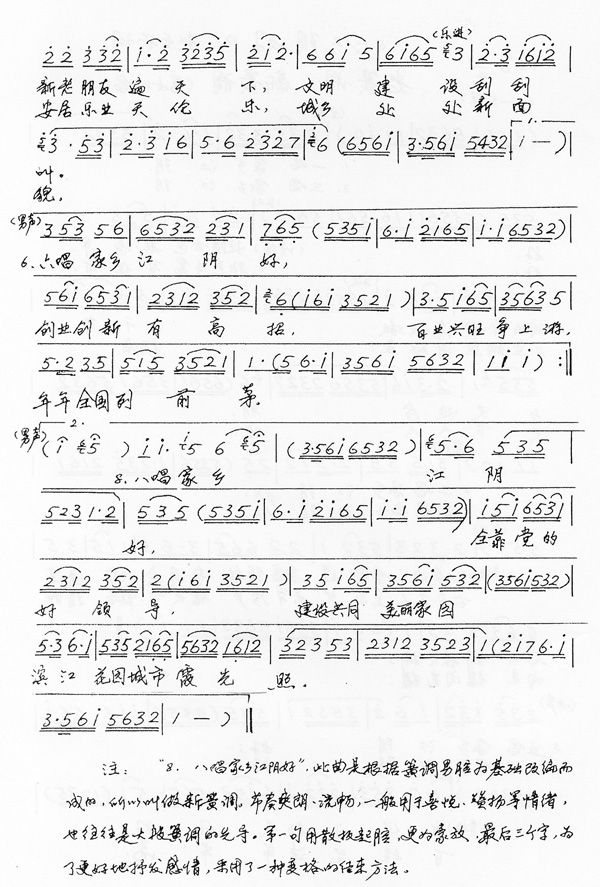 (乐进)
2 2 3 3 2 | 1·2 3 2 3 5 | 2 1 2· | 6 6 1 5 | 6 1 6 5 3 | 2·3 1 6 1 2 |
新老朋友遍天下,文明建设刮刮
安居乐业天伦乐,城乡处处新面
3·5 3 | 2·3 1 6 | 5·6 2 3 2 7 | 6 (6 5 6 1 | 3·5 6 1 5 4 3 2 | 1 —) |
叫。
貌,
(男声) 3 5 3 5 6 | 6 5 3 2 2 3 1 | 7 6 5 (5 3 5 1 | 6·1 2 1 6 5 | 1·1 6 5 3 2) |
6、六唱家乡江阴好,
5 6 1 6 5 3 1 | 2 3 1 2 3 5 2 | 6 (1 6 1 3 5 2 1) | 3·5 1 6 5 | 3 5 6 3 5 |
创业创新有高招, 百业兴旺争上游,
5·2 3 5 | 5 1 5 3 5 2 1 | 1·(5 6·1 | 3 5 6 1 5 6 3 2 | 1 1 1) :||
年年全国列前茅。
2.
(男声) (1 5 ) 1 1· 5 6 5 | (3·5 6 1 6 5 3 2) | 5·6 5 3 5
8.八唱家乡江阴
5 2 3 1·2 | 5 3 5 (5 3 5 1 | 6·1 2 1 6 5 | 1·1 6 5 3 2) | 1 5 1 6 5 3 1 |
好, 全靠党的
2 3 1 2 3 5 2 | 2 (1 6 1 3 5 2 1) | 3 5 1 6 5 | 3 5 6 1 5 3 2 | (3 5 6 1 5 3 2) |
好领导, 建设共同美丽家园
5·3 6·1 | 5 3 5 2 1 6 5 | 5 6 3 2 1 6 1 2 | 3 2 3 5 3 | 2 3 1 2 3 5 2 3 | 1 (2 1 7 6·1 |
滨江花园城市霞光照。
3·5 6 1 5 6 3 2 | 1 —) ||
注: “8、八唱家乡江阴好”,此曲是根据簧调男腔为基础改编而
成的,所以叫做新簧调。节奏爽朗、流畅,一般用于喜悦、赞扬等情绪,
也往往是大段簧调的先导。第一句用散板起腔,更为豪放,最后三个字,为
了更好地抒发感情,采用了一种变格的结束方法。